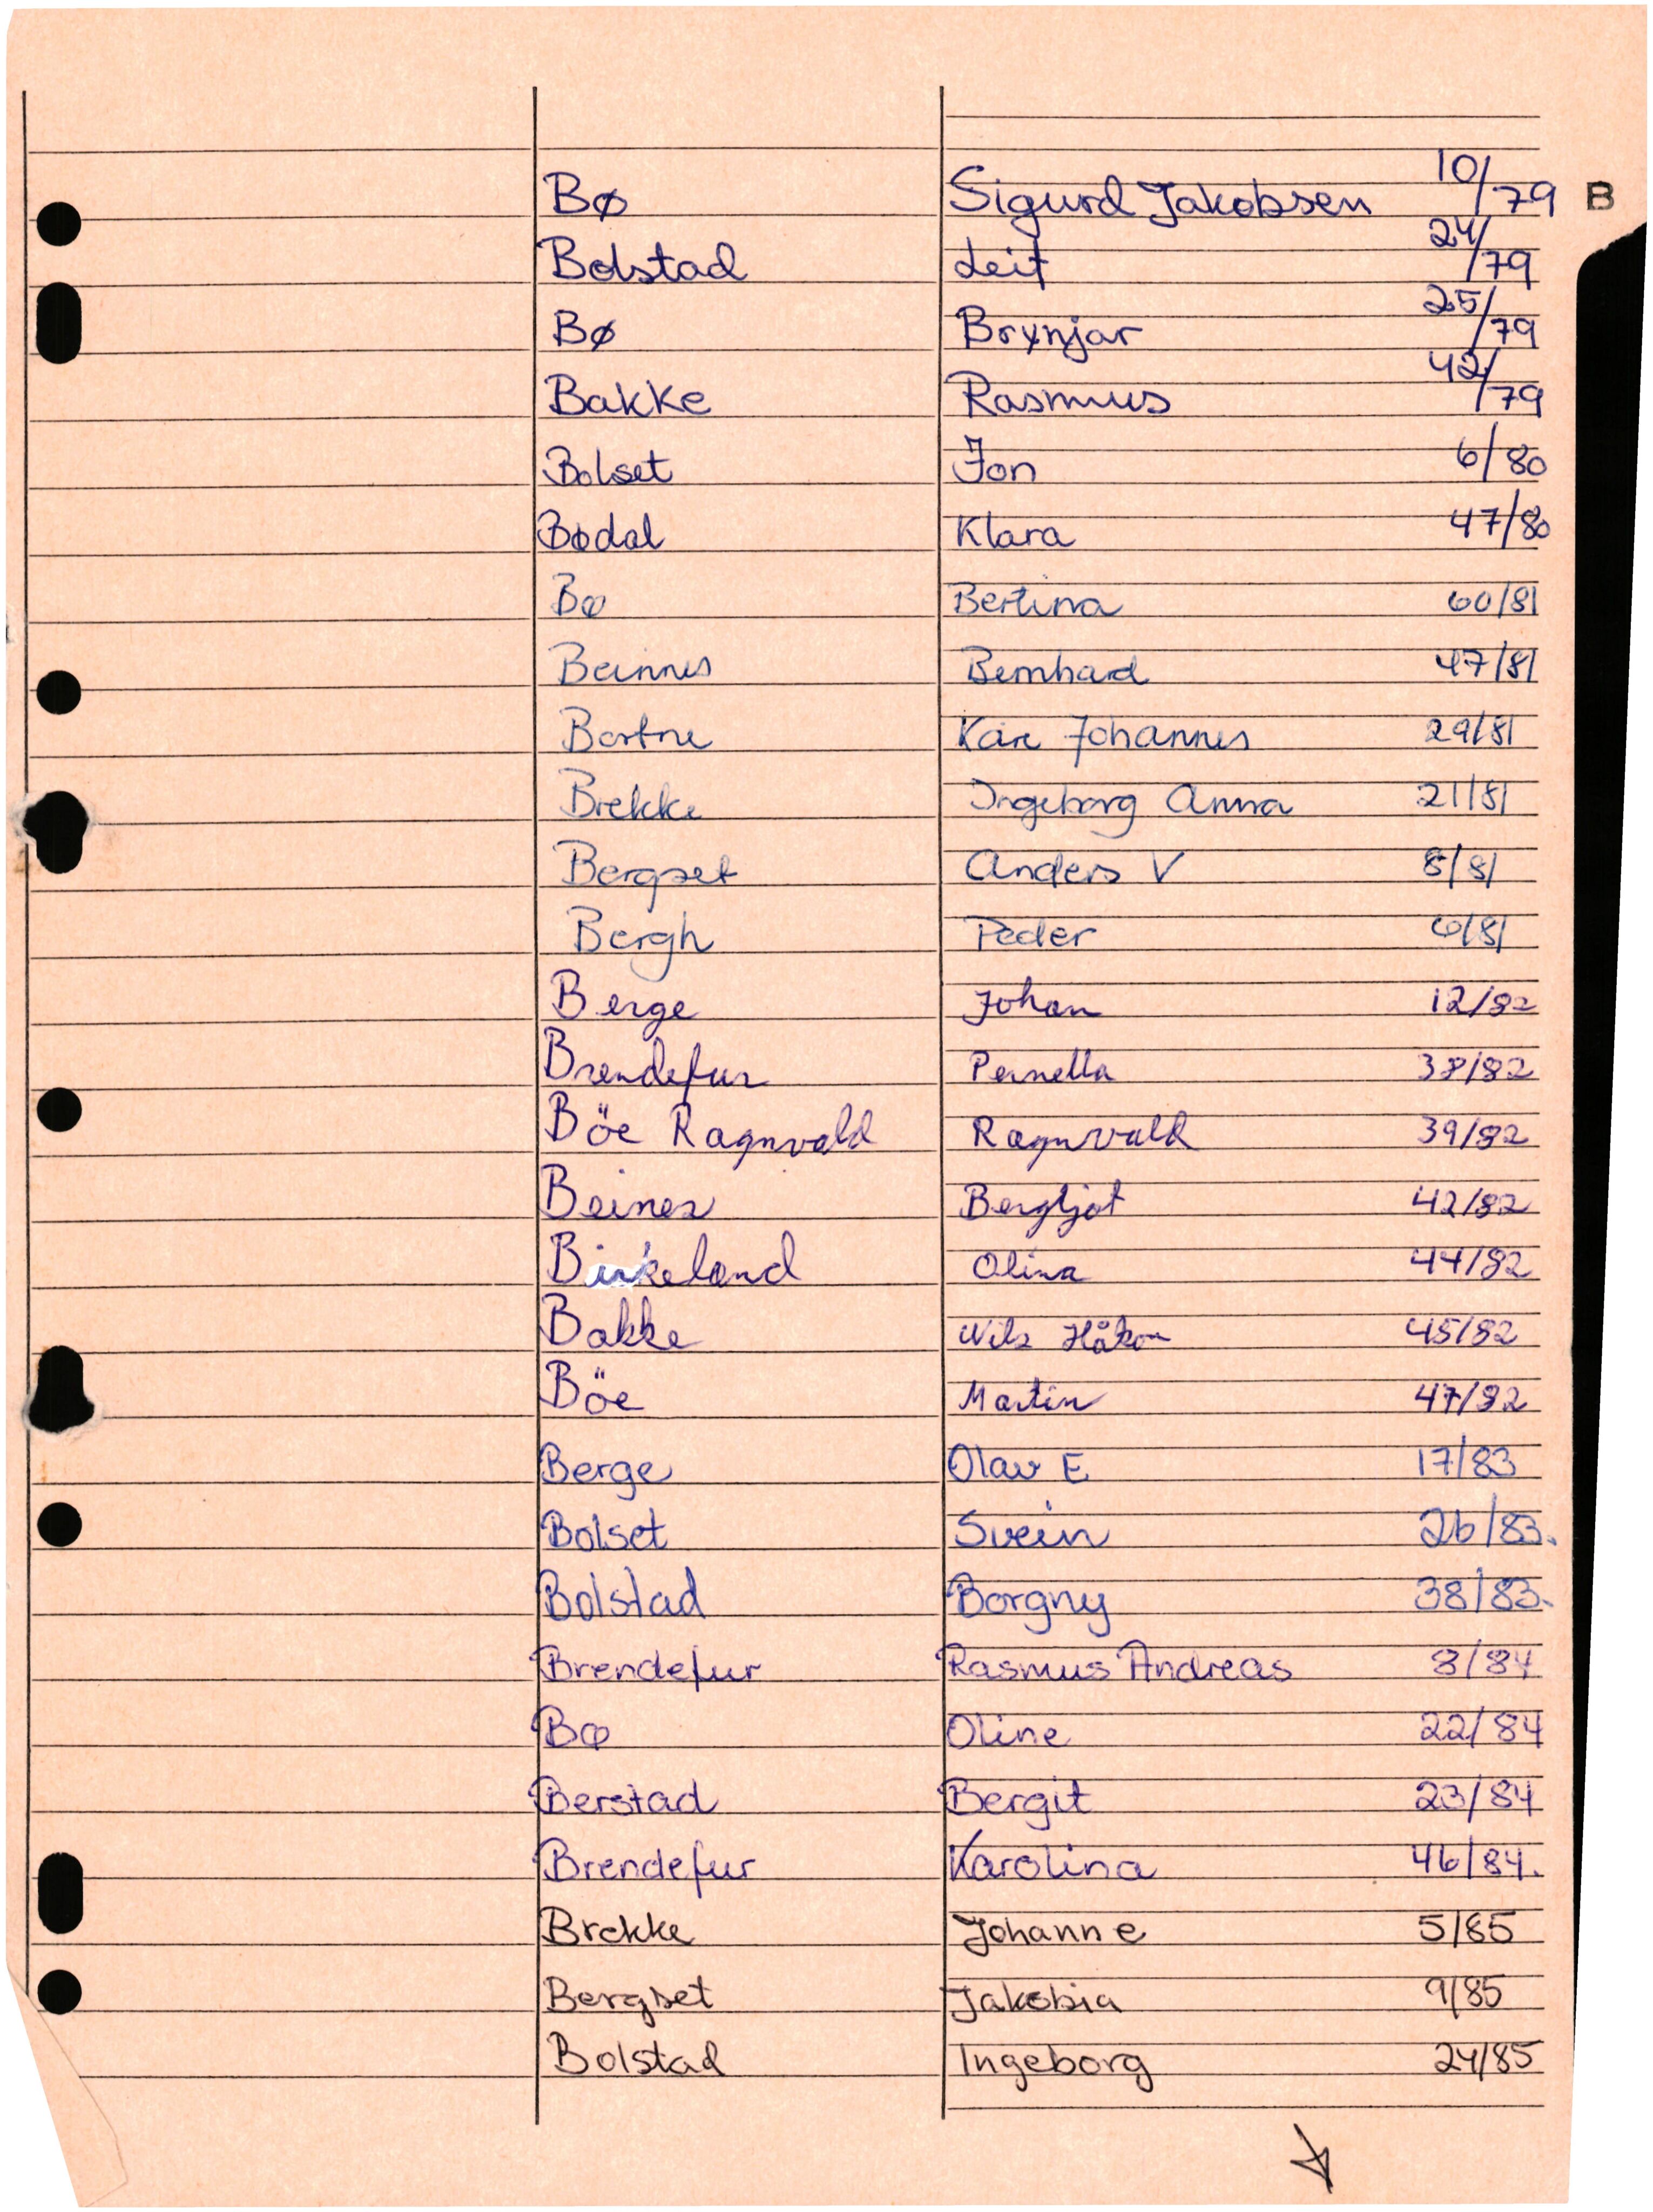 Bø Sigurd Jakobsen 10/79 B
Bolstad Leif 24/79
Bø Brynjar 25/79
Bakke Rasmus 42/79
Bolset Jon 6/80
Bødal Klara 47/80
Bø Bertina 60/81
Beinnes Bernhard 47/81
Bortne Kåre Johannes 29/81
Brekke Ingeborg Anna 21/81
Bergset Anders V 8/81
Bergh Peder 6/81
Berge Johan 12/82
Brendefur Pernella 38/82
Böe Ragnvald Ragnvald 39/82
Beines Bergljot 42/82
Birkeland Olina 44/82
Bakke Nils Håkon 45/82
Böe Martin 47/82
Berge Olav E 17/83
Bolset Svein 26/83.
Bolstad Borgny 38/83.
Brendefur Rasmus Andreas 8/84
Bø Oline 22/84
Berstad Bergit 23/84
Brendefur Karolina 46/84.
Brekke Johanne 5/85
Bergset Jakobia 9/85
Bolstad Ingeborg 24/85